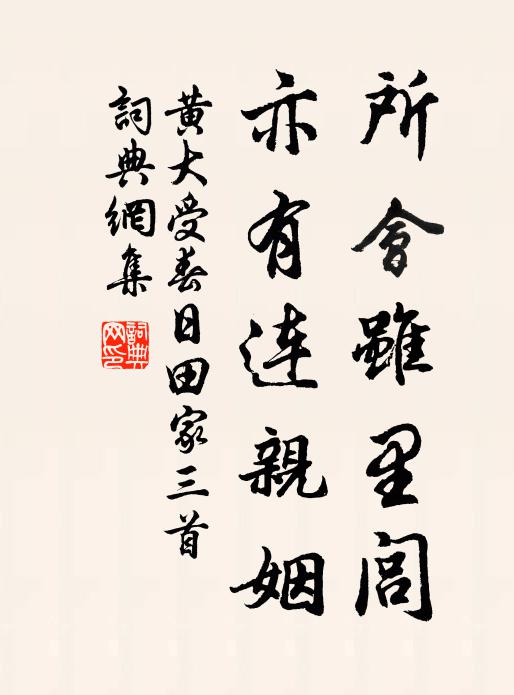 所會雖里閭
亦有連親姻
黃大受春日田家三首
詞典網集
詞典網印